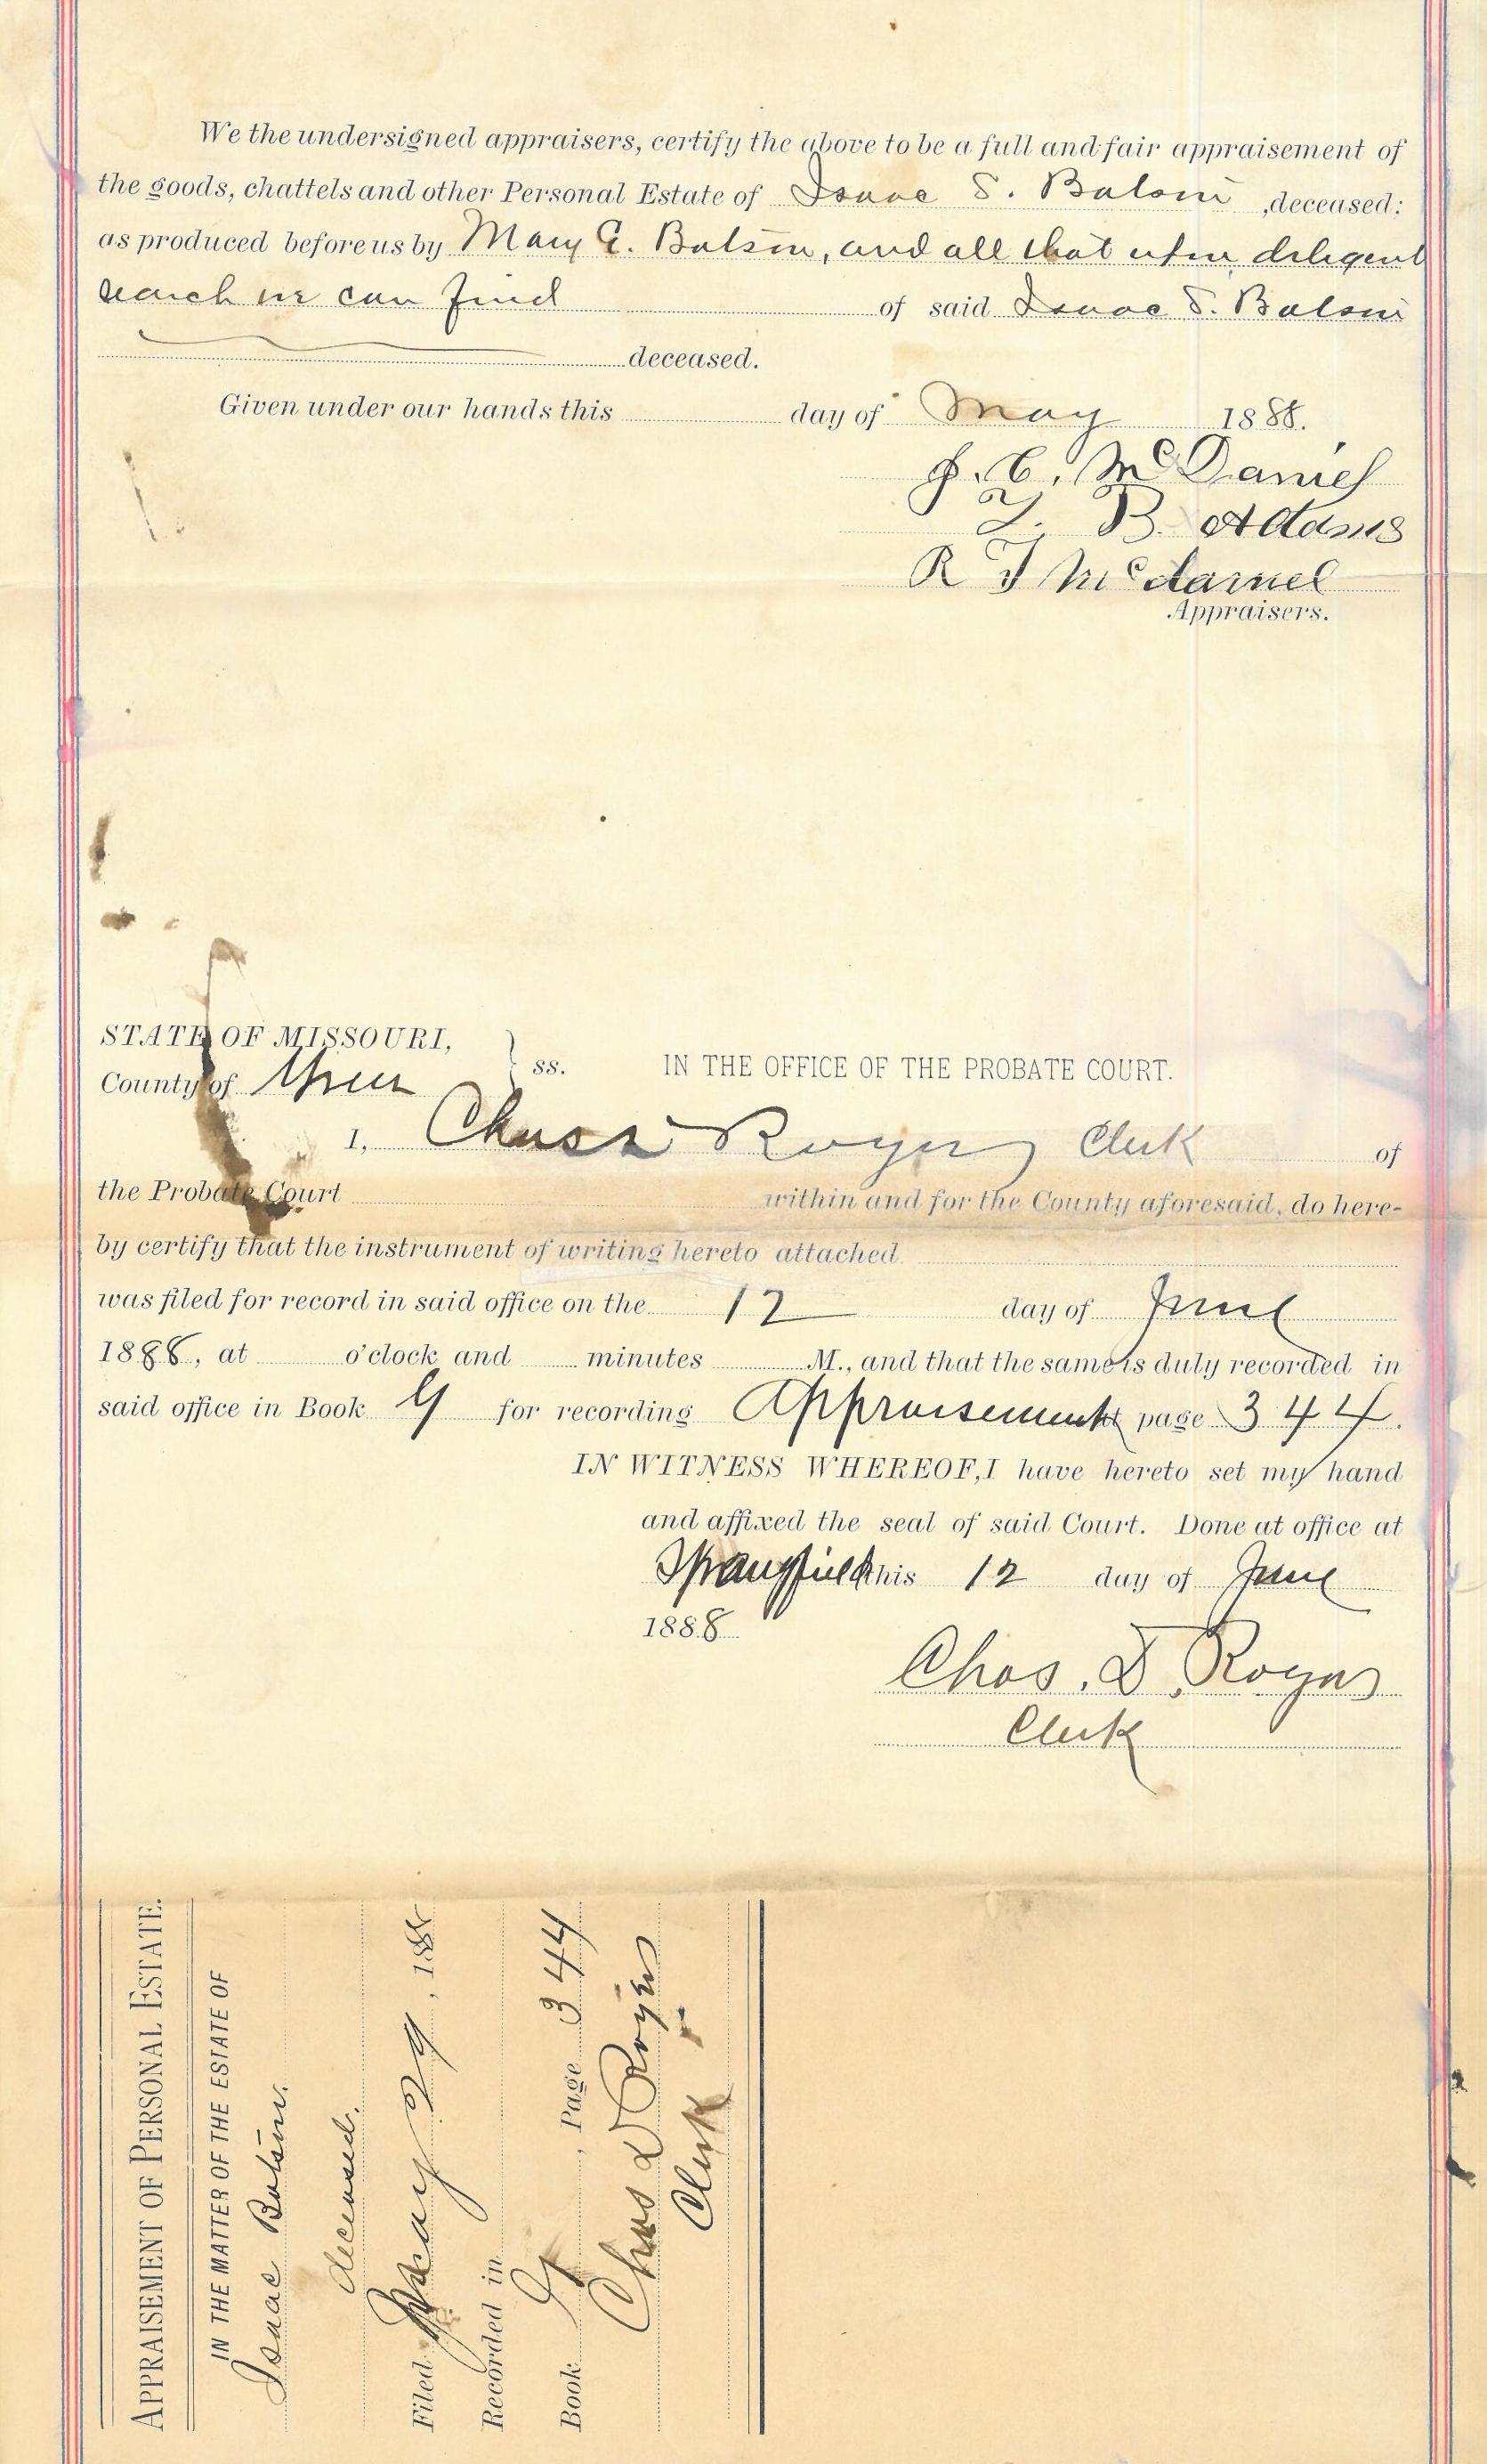 We the undersigned appraisers, certify the above to be a full and fair appraisement of
the goods, chattels and other Personal Estate of Isaac S. Botsin, deceased:
as produced before us by Mary E. Botsin, and all that upon diligent
search we can find of said Isaac S. Botsin
deceased.
Given under our hands this day of May 1888.
J. C. McDaniel
B. Adams
R T McDaniel
Appraisers.
STATE OF MISSOURI,
County of Green } ss. IN THE OFFICE OF THE PROBATE COURT.
I, Chas D Royers Clerk of
the Probate Court within and for the County aforesaid, do here-
by certify that the instrument of writing hereto attached
was filed for record in said office on the 12 day of June
1888, at o'clock and minutes M., and that the same is duly recorded in
said office in Book G for recording Appraisement at page 344.
IN WITNESS WHEREOF, I have hereto set my hand
and affixed the seal of said Court. Done at office at
Springfield this 12 day of June
1888
Chas. D. Royers
Clerk
APPRAISEMENT OF PERSONAL ESTATE.
IN THE MATTER OF THE ESTATE OF
Isaac Botsin.
deceased.
Filed May 29, 1888
Recorded in
Book G, Page 344
Chas D Royers
Clerk